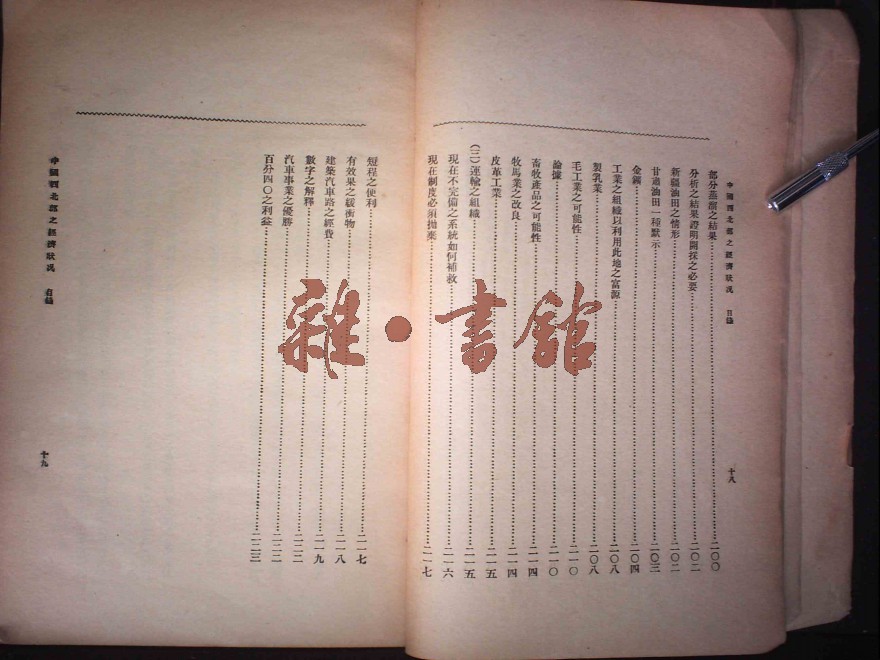 中國西北部之經濟狀況 目錄 十八
部分蒸溜之結果 二〇〇
分析之結果證明開採之必要 二〇二
新疆油田之情形 二〇二
甘肅油田一種默示 二〇三
金鑛 二〇四
工業之組織以利用此地之富源 二〇八
製乳業 二〇八
毛工業之可能性 二一〇
論據 二一〇
畜牧產品之可能性 二一四
牧馬業之改良 二一四
皮革工業 二一五
(三)運輸之組織 二一五
現在不完備之系統如何補救 二一六
現在制度必須拋棄 二一七
短程之便利 二一七
有效果之緩衝物 二一八
建築汽車路之經費 二一八
數字之解釋 二一九
汽車事業之優勝 二二二
百分四〇之利益 二二三
中國西北部之經濟狀況 目錄 十九
雜·書館